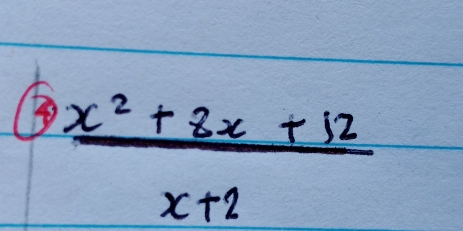 ④ x² + 8x + 12
x+2